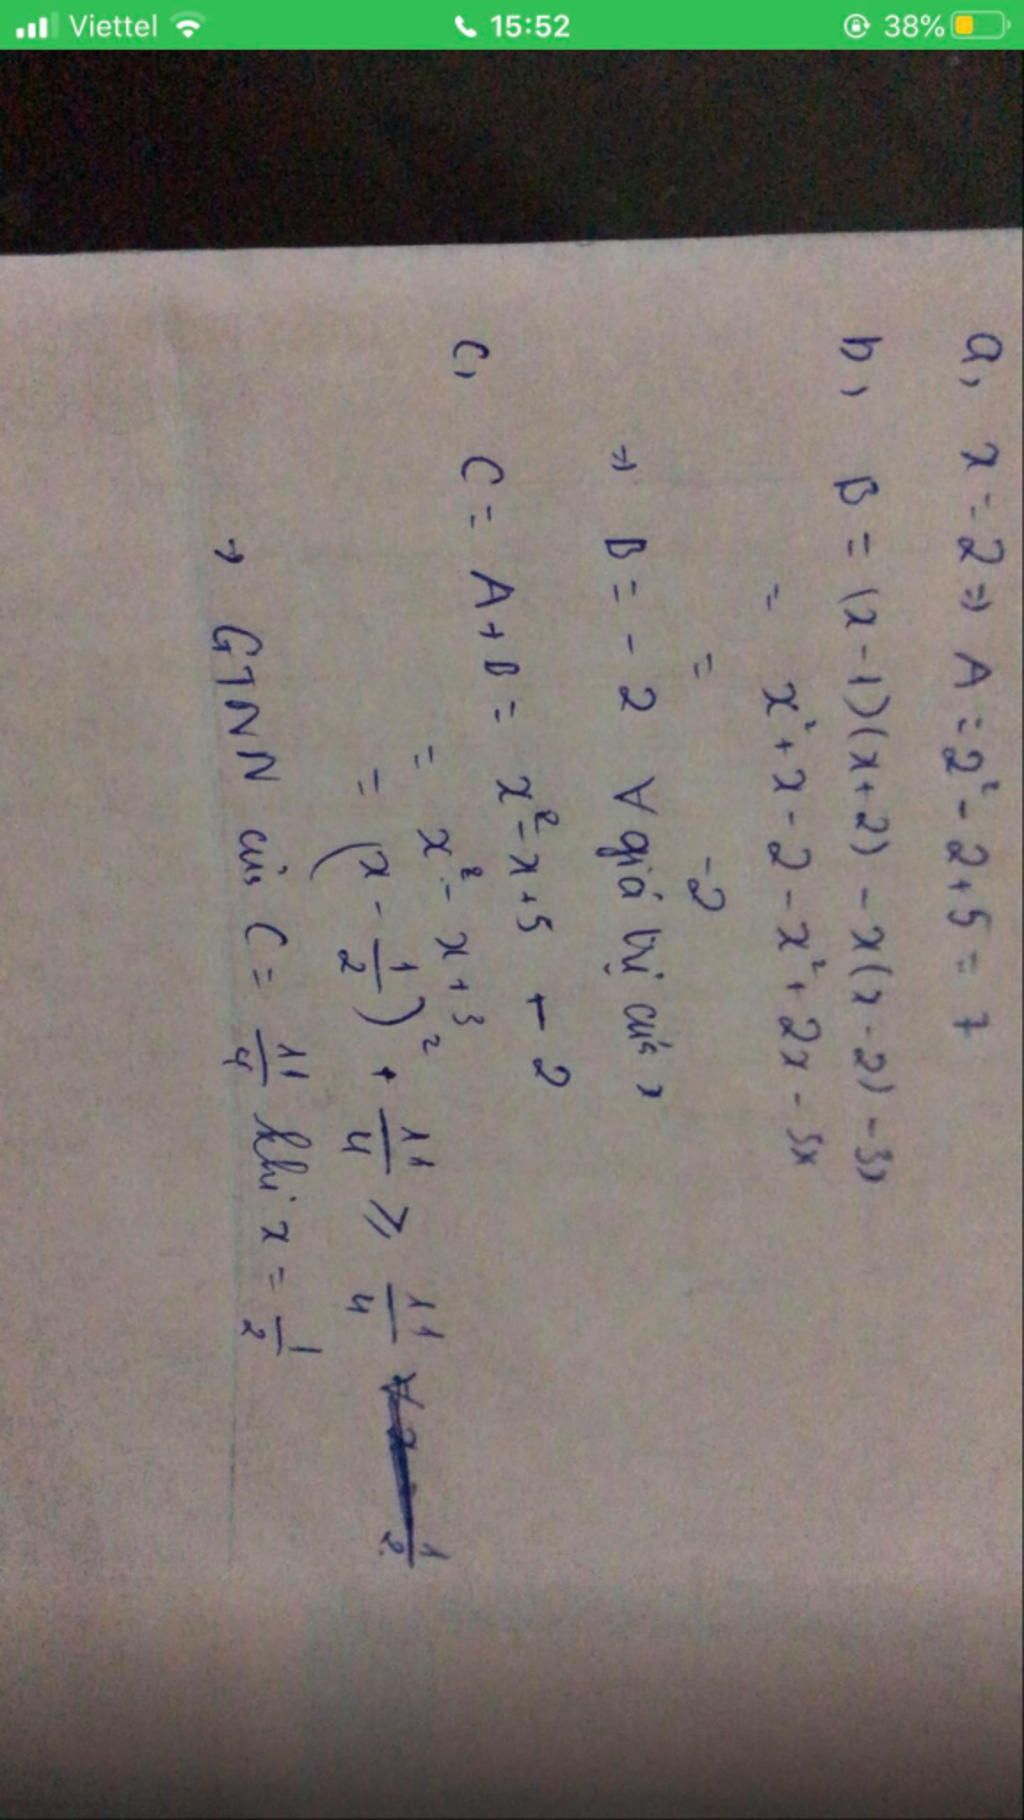 Viettel 15:52 38%
a, x = 2 => A = 2² - 2 + 5 = 7
b, B = (x - 1)(x + 2) - x(x - 2) - 3x
= x² + x - 2 - x² + 2x - 3x
= -2
=> B = - 2 ∀ giá trị của x
c, C = A + B = x² - x + 5 - 2
= x² - x + 3
= (x - 1/2)² + 11/4 ≥ 11/4
→ GTNN của C = 11/4 khi x = 1/2